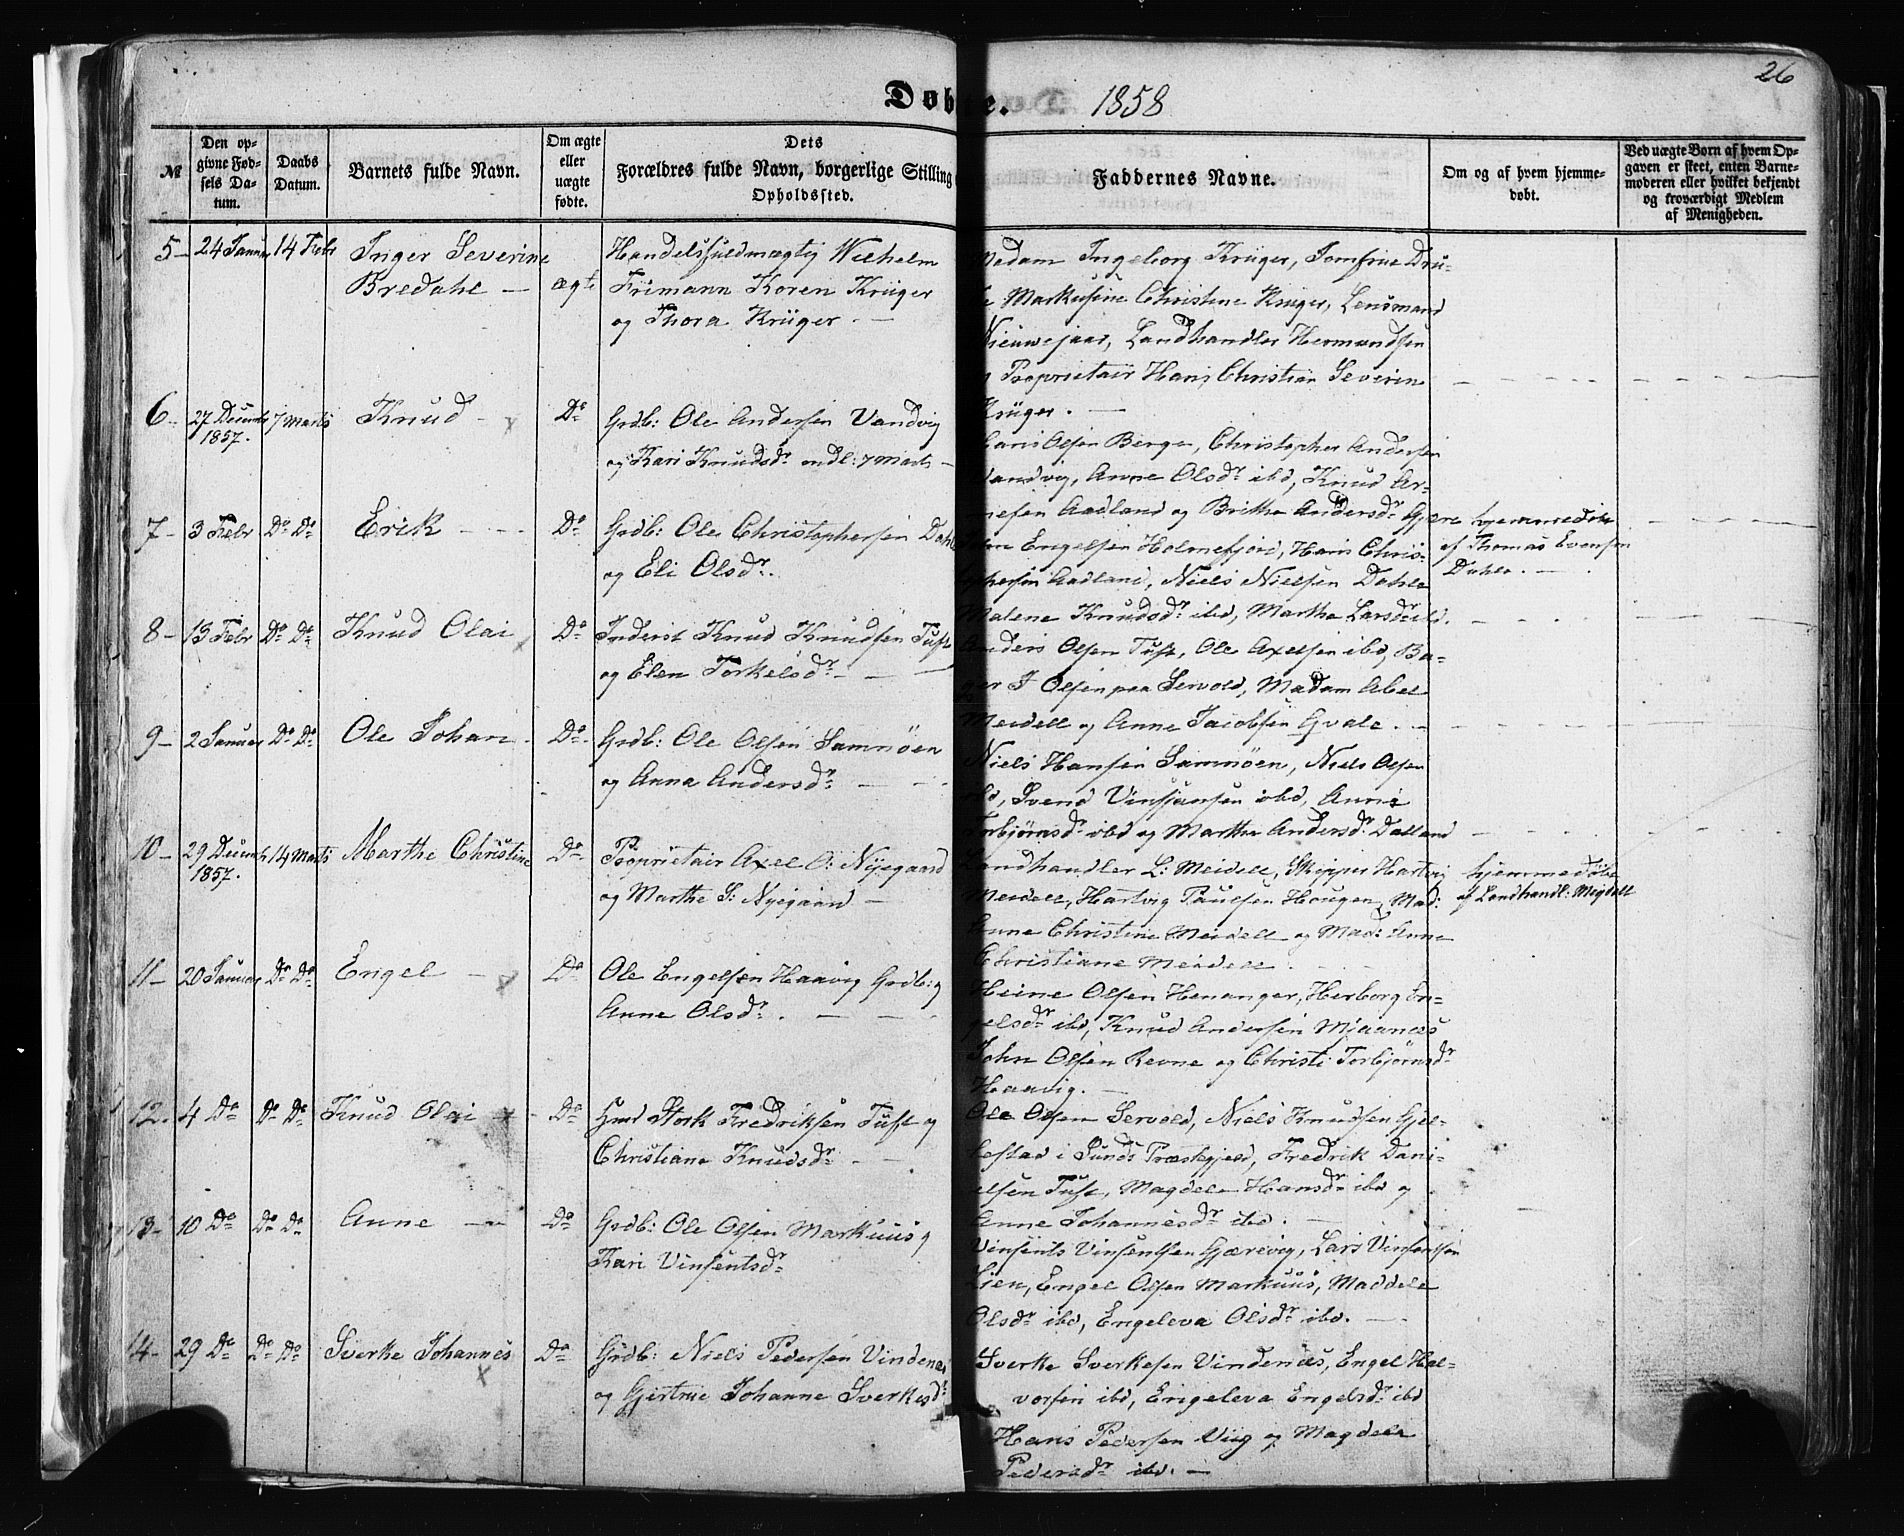 26
Døbte. 1858
№
Den opgivne Fødsels Datum.
Daabs Datum.
Barnets fulde Navn.
Om ægte eller uægte fødte.
Dets Forældres fulde Navn, borgerlige Stilling
Opholdssted.
Faddernes Navne.
Om og af hvem hjemmedøbt.
Ved uægte Børn af hvem Opgaven er skeet, enten Barnemoderen eller hvilket bekjendt og troværdigt Medlem af Menigheden.
5 24 Januar 14 Febr Inger Severine
Bredahl ægte
Handelsfuldmægtig Wilhelm
Frimann Koren Krüger
og Thora Krüger.
Madam Ingeborg Krüger, Jomfrue Dru-
Markusine Christine Krüger, Lensmand
Nieuwejaar, Landhandler Hermundsen
Proprietair Hans Christian Severin
Krüger.
6 27 Decembr 1857. 7 Marts Knud Do
Grdb: Ole Andersen Vandvig
og Kari Knudsdr. 7 Marts
Hans Olsen Berge, Christopher Andersen
Vandvig, Anne Olsdr ibd, Knud Ar-
nesen Aadland og Brithe Andersdr Gjære
7 3 Febr Do Do Erik Do
Grdb: Ole Christophersen Dahle
og Eli Olsdr.
Engelsen Holmefjord, Hans Chris-
tophersen Aadland, Niels Nielsen Dahle
Malene Knudsdr ibd, Marthe Larsdr ibd.
hjemmedøbt
af Thomas Evensen
Dahle.
8 13 Febr Do Do Knud Olai Do
Inderst Knud Knudsen Tuft
og Elen Torkelsdr
Anders Olsen Tuft, Ole Axelsen ibd, Ba-
ger J Olsen paa Servold, Madam Abel
Meidell og Anne Jacobsen Qvale.
9 2 Januar Do Do Ole Johan Do
Grdb: Ole Olsen Samnøen
og Anna Andersdr
Niels Hansen Samnøen, Niels Olsen
ibd, Svend Vinsjansen ibd, Anne
Torbjørnsdr ibd og Marthe Andersdr Dalland
10 29 Decembr 1857. 14 Marts Marthe Christine Do
Proprietair Axel O: Nyegaard
og Marthe S: Nyegaard
Landhandler L: Meidell, Skipper Hartvig
Meidell, Hartvig Paulsen Hougen, Mad:
Anne Christine Meidell og Mad: Anne
Christiane Meidell.
hjemmedøbt
af Landhandl: Meidell
11 20 Januar Do Do Engel Do
Ole Engelsen Haavig Grdb: og
Anne Olsdr.
Heine Olsen Henanger, Herborg En-
gelsdr ibd, Knud Andersen Mjaanes
John Olsen Revne og Christi Torbjørnsdr
Haavig.
12 4 Do Do Do Knud Olai Do
Hmd Stork Fredriksen Tuft og
Christiane Knudsdr.
Ole Olsen Servold, Niels Knudsen Gjel-
lestad i Sunds Præstegjeld, Fredrik Dani-
elsen Tuft, Magdele Hansdr ibd og
Anne Johannesdr ibd.
13 10 Do Do Do Anne Do
Grdb: Ole Olsen Markuus og
Kari Vinsentsdr
Vinsents Vinsentsen Gjærevig, Lars Vinsentsen
Lien, Engel Olsen Markuus, Maddele
Olsdr ibd, Engeleva Olsdr ibd.
14 29 Do Do Do Sverke Johannes Do
Grdb: Niels Pedersen Vindenæs
og Gjertrue Johanne Sverkesdr
Sverke Sverkesen Vindenæs, Engel Hal-
vorsen ibd, Engeleva Engelsdr ibd
Hans Pedersen Viig og Magdele
Pedersdr ibd.